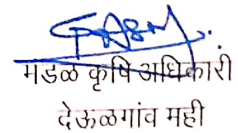 मडळ कृषि अधिकारी
देऊळगांव मही